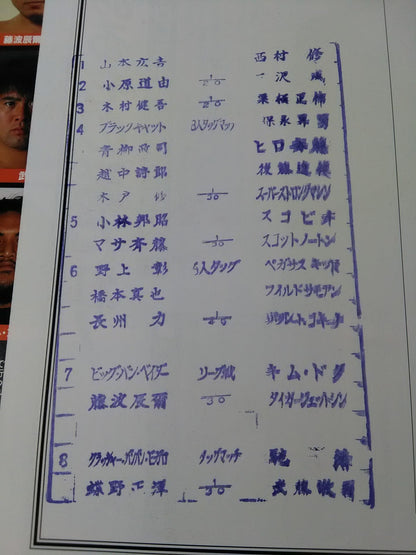 藤波辰爾
1 山本広吉 西村 修
2 小原道由 1/20
3 木村健吾 1/20
4 ブラックキャット 8人タッグマッチ 保永昇男
青柳政司 ヒロ斉藤
越中詩郎 後藤達俊
木戸 修 1/30 スーパーストロングマシン
5 小林邦昭 スコピオ
マサ斉藤 1/30 スコットノートン
6 野上 彰 6人タッグ ペガサスキッド
橋本真也 ワイルドサモアン
長州 力
7 ビッグ・バン・ベイダー リーグ戦 キム・ドク
藤波辰爾 1/30 タイガージェットシン
8 クラッシャー・バンバン・ビガロ タッグマッチ 馳 浩
蝶野正洋 1/30 武藤敬司